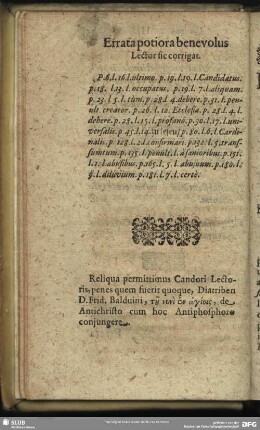 Errata potiora benevolus
Lector sic corrigat.
P.6.l.16.l.ultimo. p.19.l.19.l.Candidatus.
p.18. l.13.l. occupatus. p.19.l. 7.l.aliquam.
p.23.l 5.l. timi. p.28.l 4.debere. p.31.l. penult.
creator. p.26.l. 12. Ecclesia. p.28.l. 4.l.
debere. p.28.l.15.l. profano. p.30.l.17.l.universalis.
p.45.l.14. p.80.l.6.l. Cardinalis.
p.128.l. 2.l.confirmari. p.132.l. 5.transsumtum.
p.135.l. penult.l. à sanioribus. p.151.
l.2.l.abusibus. p.165.l. 5.l. abusuum. p.180.l.
9.l. diluvium. p.181.l.7.l. certò.
Reliqua permittimus Candori Lectoris,
penes quem fuerit quoque, Diatriben
D. Frid. Balduini, τῦ νυνὶ ἐν ἁγίοις, de
Antichristo cum hoc Antiphosphoro
conjungere.
SLUB
DFG